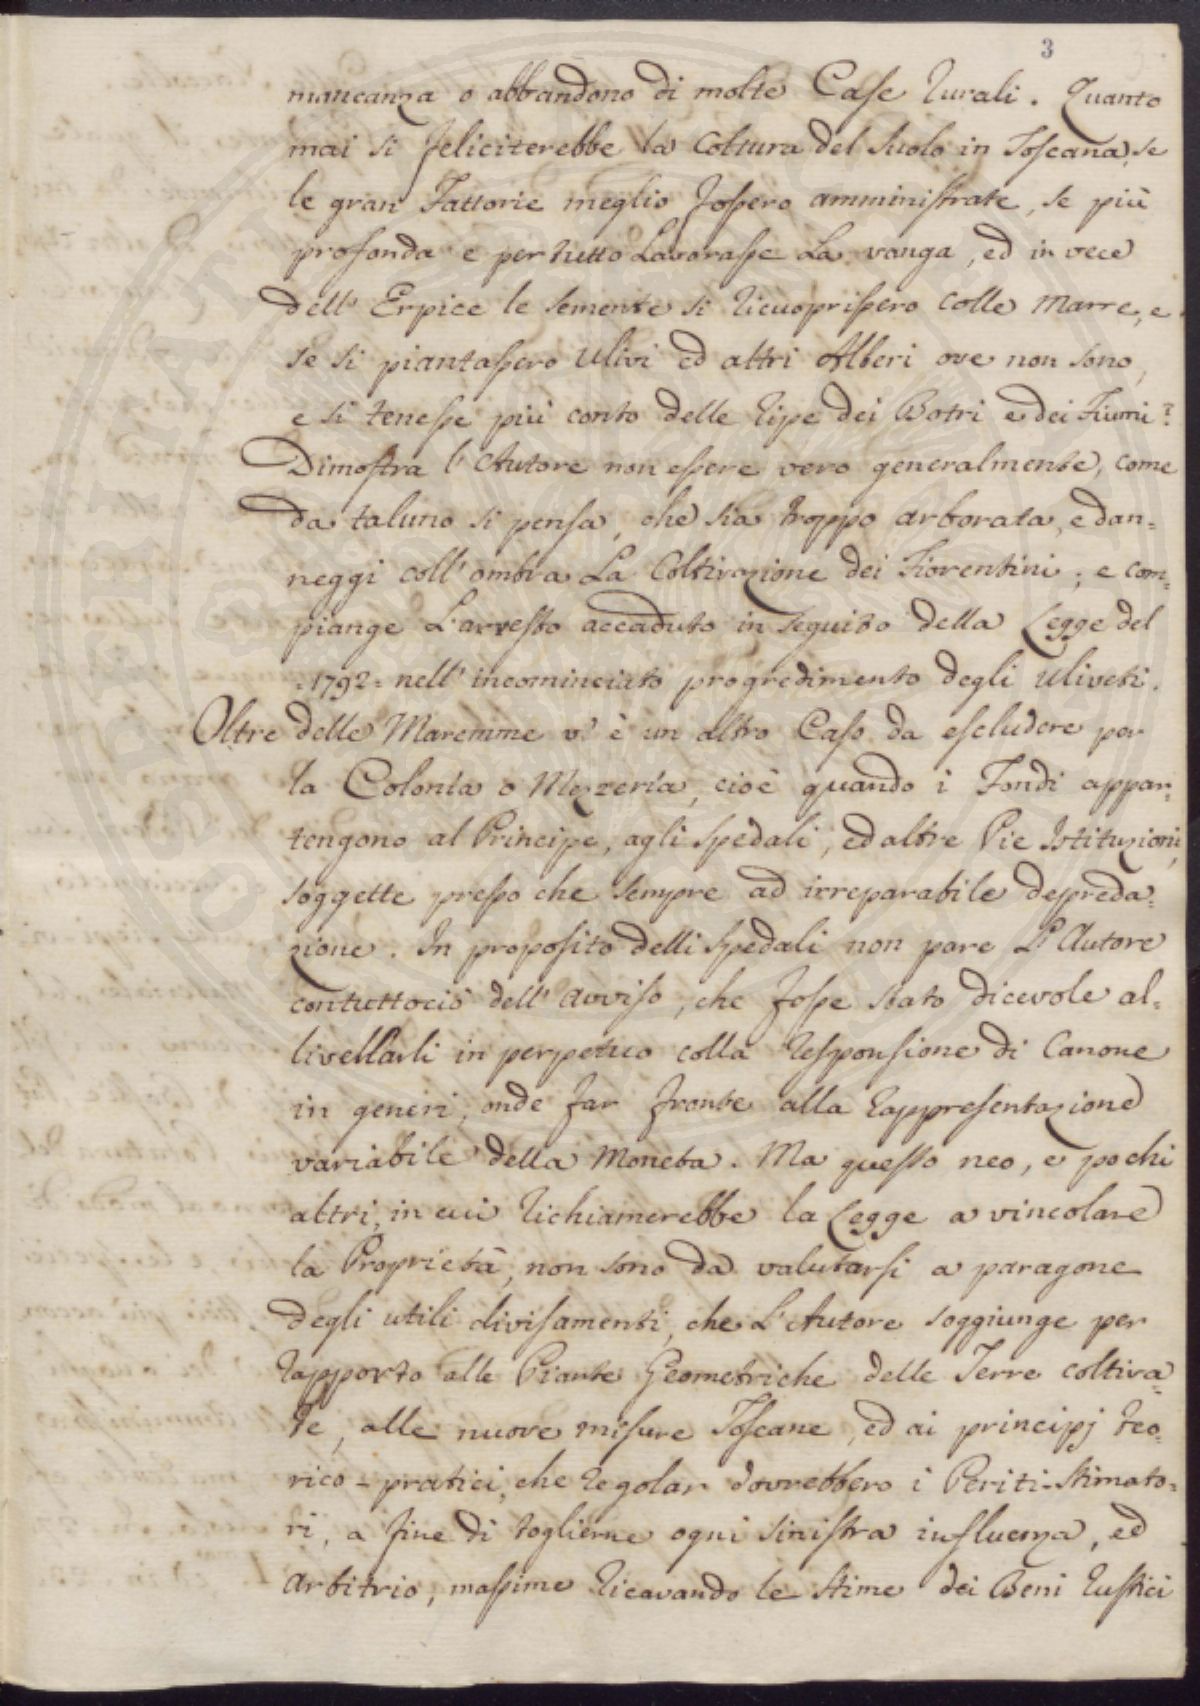 3
mancanza o abbandono di molte Case rurali. Quanto
mai si feliciterebbe la coltura del suolo in Toscana, se
le gran Fattorie meglio fossero amministrate, se più
profonda e per tutto lavorasse la vanga, ed in vece
dell' Erpice le semente si ricuoprissero colle Marre, e
se si piantassero Ulivi ed altri Alberi ove non sono,
e si tenesse più conto delle ripe dei Botri e dei Fiumi?
Dimostra l' Autore non essere vero generalmente, come
da taluno si pensa, che sia troppo arborata, e dan=
neggi coll' ombra la Coltivazione dei Fiorentini; e com=
piange l'arresto accaduto in seguito della Legge del
=1792= nell' incominciato progredimento degli Uliveti.
Oltre delle Maremme v' è un altro Caso da escludere per
la Colonìa o Mezzerìa, cioè quando i Fondi appar=
tengono al Principe, agli Spedali, ed altre Pie Istituzioni,
soggette presso che sempre ad irreparabile depreda=
zione. In proposito delli Spedali non pare l' Autore
contuttociò dell' avviso, che fosse stato dicevole al=
livellarli in perpetuo colla responsione di Canone
in generi, onde far fronte alla rappresentazione
variabile della Moneta. Ma questo neo, e pochi
altri, in cui richiamerebbe la Legge a vincolare
la Proprietà, non sono da valutarsi a paragone
degli utili divisamenti, che l' Autore soggiunge per
rapporto alle Piante Geometriche delle Terre coltiva=
te, alle nuove misure Toscane, ed ai principj teo=
rico-pratici, che regolar dovrebbero i Periti-Stimato=
ri, a fine di toglierne ogni sinistra influenza, ed
arbitrio, massime ricavando le stime dei Beni rustici